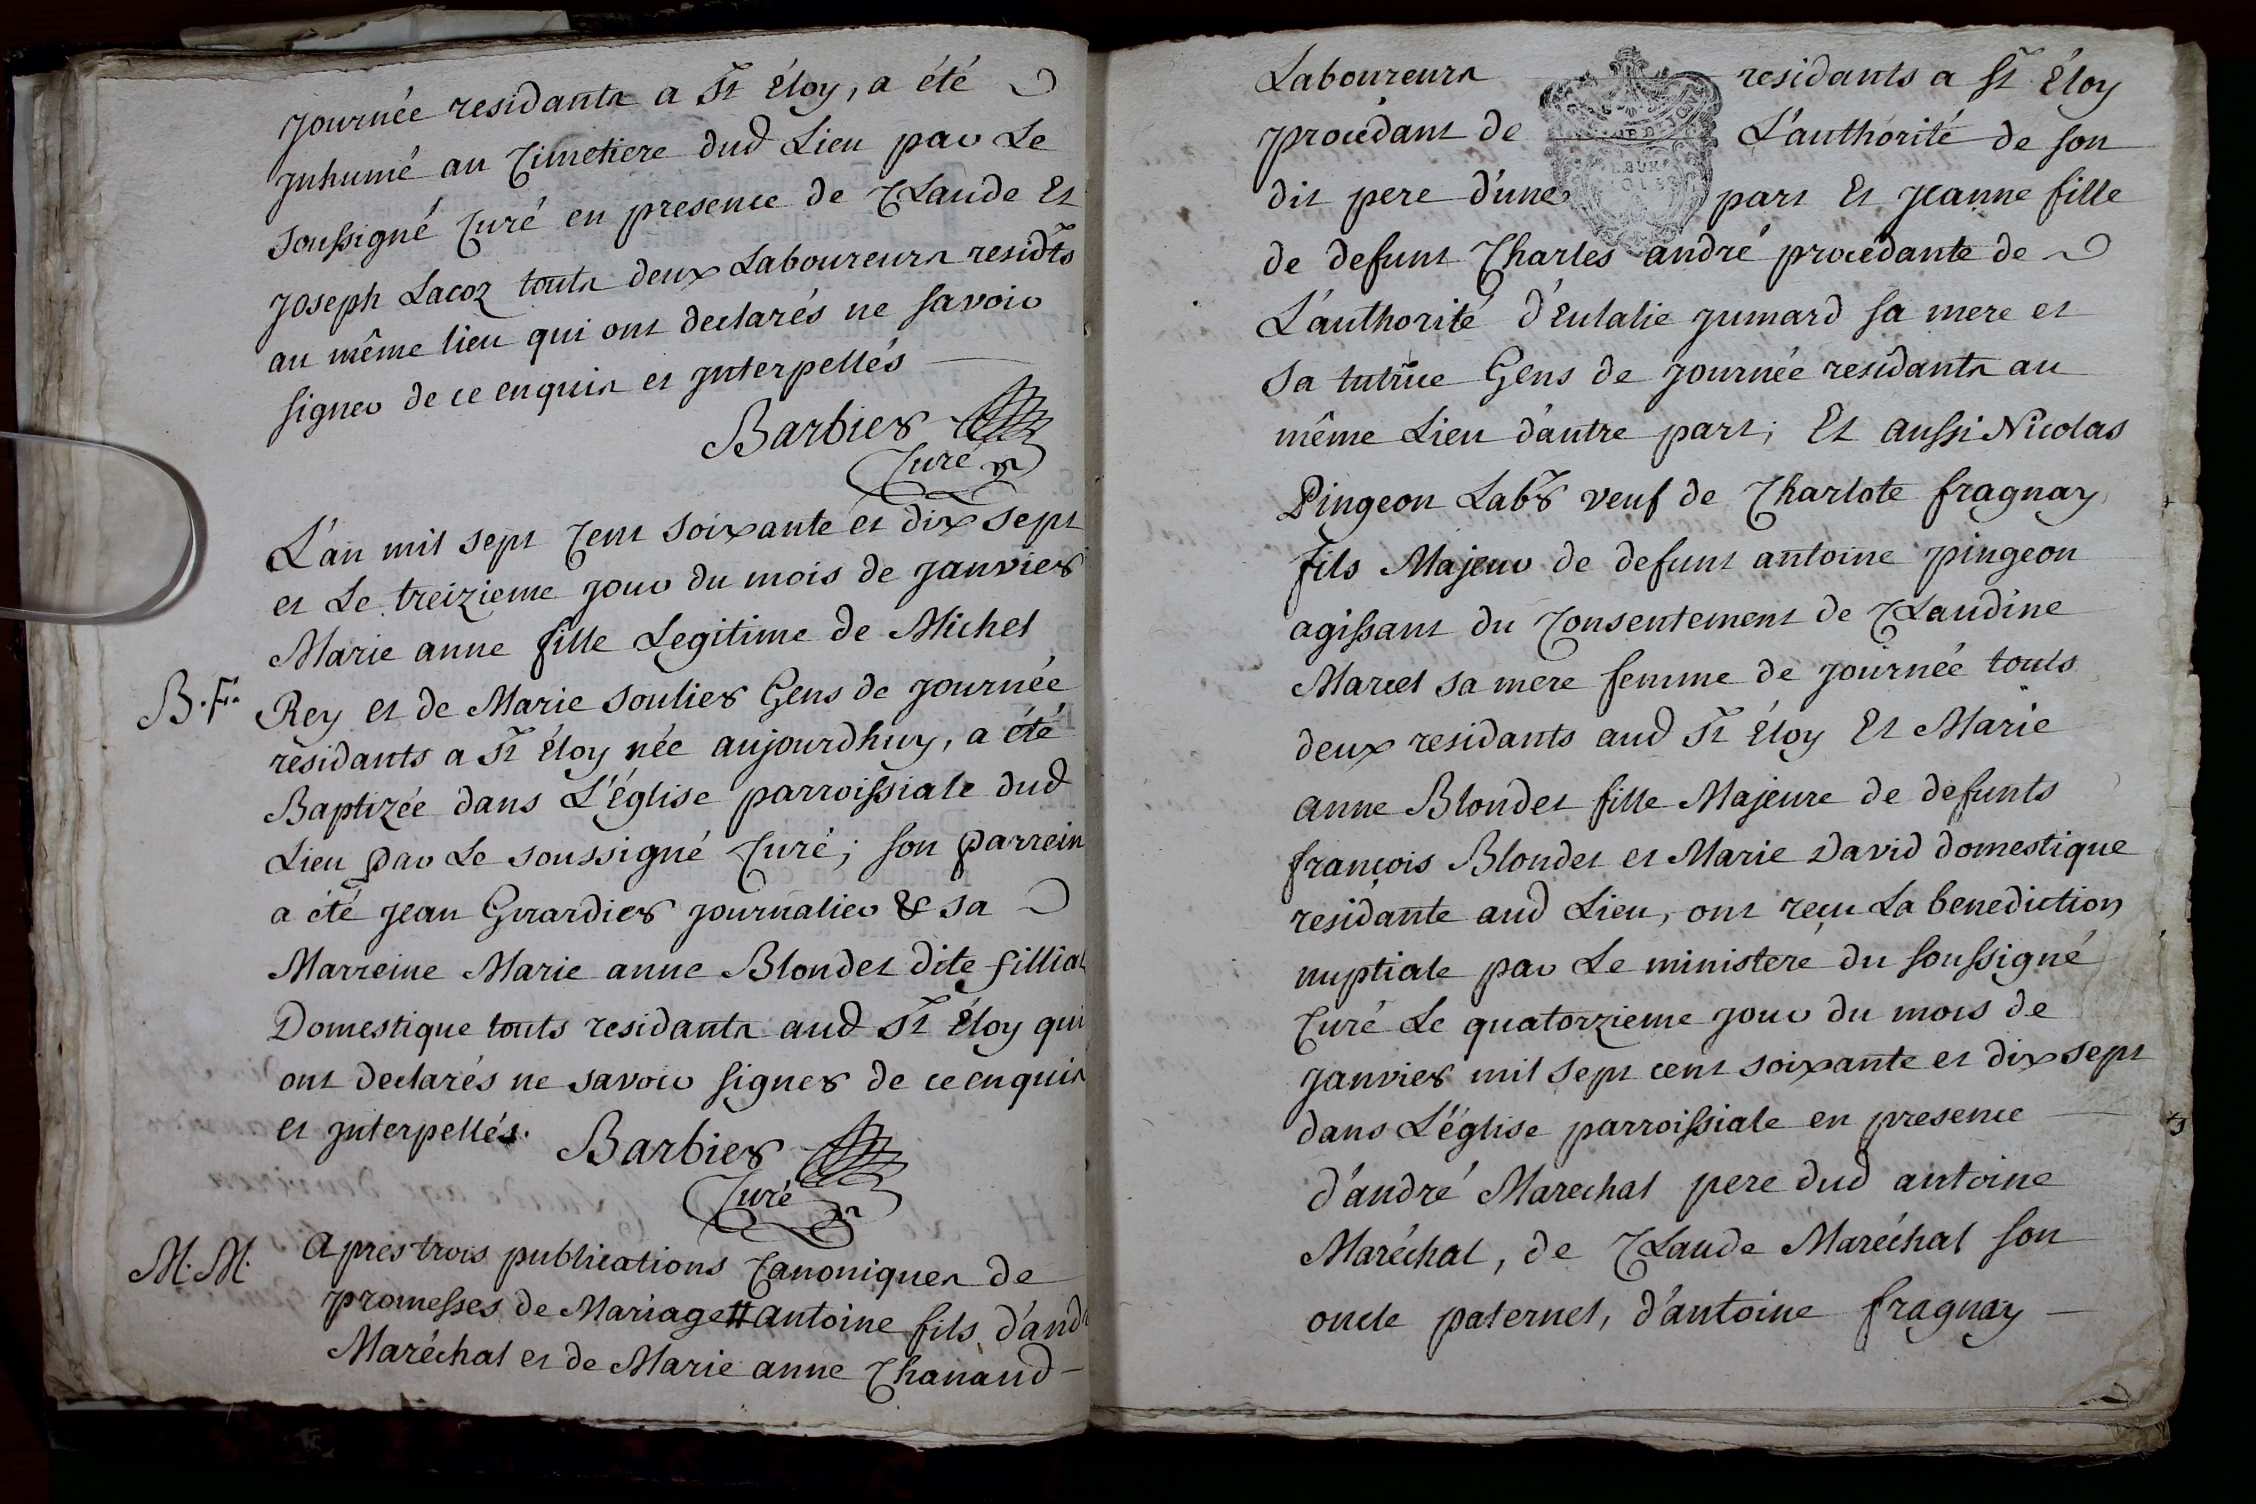 journée residants a St Éloy, a été
jnhumé au Cimetiere dud Lieu par Le
soussigné Curé en presence de CLaude Et
joseph Lacoz touts deux Laboureurs residts
au même lieu qui ont declarés ne savoir
signer de ce enquis et jnterpellés
Barbier
Curé
L'an mil sept Cent soixante et dix sept
et Le treizieme jour du mois de janvier
Marie anne fille Legitime de Michel
B. F. Rey et de Marie soulier Gens de journée
residants a St Éloy née aujourdhuy, a été
Baptizée dans L'église parroissiale dud
Lieu par Le soussigné Curé; son parrein
a été jean Girardier journalier & sa
Marreine Marie anne Blondet dite filliat
Domestique touts residants aud St Éloy qui
ont declarés ne savoir signer de ce enquis
et jnterpellés. Barbier
Curé
M. M. apres trois publications Canoniques de
promesses de Mariage antoine fils d'andr
Maréchal et de Marie anne Chanaud
Laboureurs residants a St Éloy
procédant de L'authorité de son
dit pere d'une part Et jeanne fille
de defunt Charles andré procédante de
L'authorité d'Eulalie jumard sa mere et
sa tutrice Gens de journée residants au
même Lieu d'autre part; Et aussi Nicolas
Pingeon Labr veuf de Charlote fragnay
fils Majeur de defunt antoine pingeon
agissant du Consentement de CLaudine
Marcel sa mere femme de journée touts
deux residants aud St Éloy Et Marie
anne Blondet fille Majeure de defunts
françois Blondet et Marie David domestique
residante aud Lieu, ont reçu La benediction
nuptiale par Le ministere du soussigné
Curé Le quatorzieme jour du mois de
janvier mil sept cent soixante et dix sept
dans L'église parroissiale en presence
d'andré Marechal pere dud antoine
Maréchal, de CLaude Maréchal son
oncle paternel, d'antoine fragnay